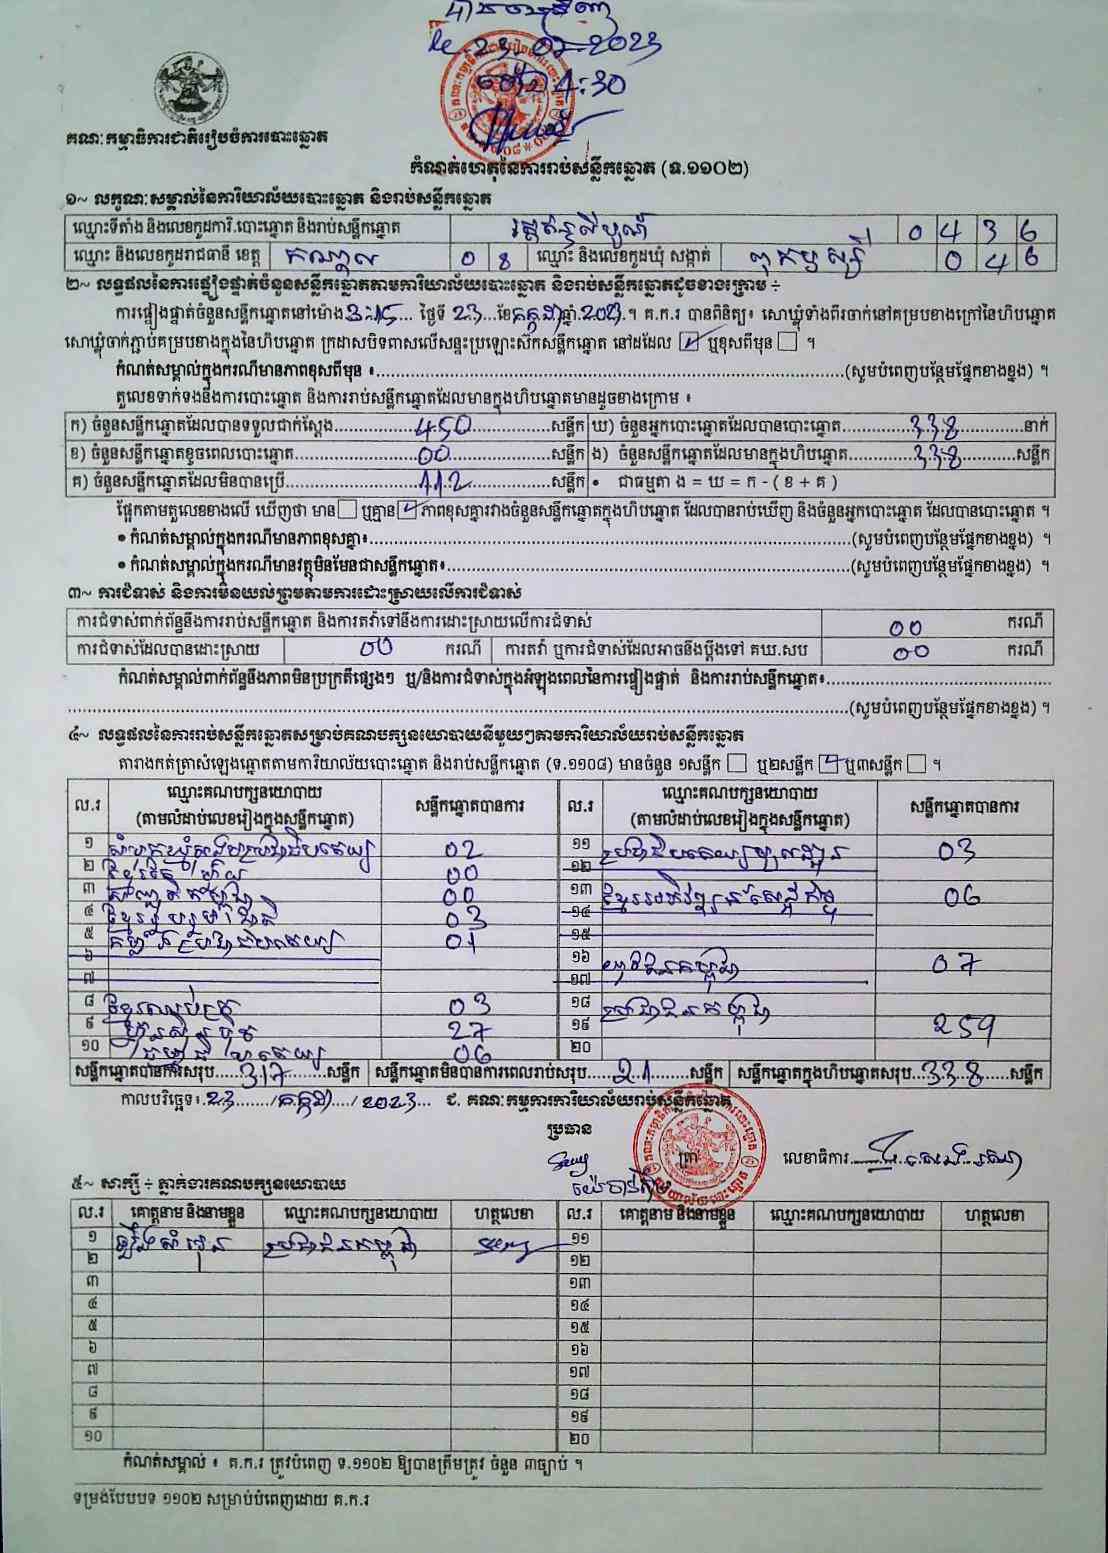 23.07.2023
4:30
គណៈកម្មាធិការជាតិរៀបចំការបោះឆ្នោត
កំណត់ហេតុនៃការរាប់សន្លឹកឆ្នោត (ទ.១១០២)
១~ លក្ខណៈសម្គាល់នៃការិយាល័យបោះឆ្នោត និងរាប់សន្លឹកឆ្នោត
ឈ្មោះទីតាំង និងលេខកូដការិ.បោះឆ្នោត និងរាប់សន្លឹកឆ្នោត 0 4 3 6
ឈ្មោះ និងលេខកូដរាជធានី ខេត្ត កណ្តាល 0 8 ឈ្មោះ និងលេខកូដឃុំ សង្កាត់ 0 4 6
២~ លទ្ធផលនៃការផ្ទៀងផ្ទាត់ចំនួនសន្លឹកឆ្នោតតាមការិយាល័យបោះឆ្នោត និងរាប់សន្លឹកឆ្នោតដូចខាងក្រោម ÷
ការផ្ទៀងផ្ទាត់ចំនួនសន្លឹកឆ្នោតនៅម៉ោង 3:15 ថ្ងៃទី 23 ខែ កក្កដា ឆ្នាំ 2023 ។ គ.ក.រ បានពិនិត្យ៖ សោឃ្លុំទាំងពីរចាក់នៅគម្របខាងក្រៅនៃហិបឆ្នោត
សោឃ្លុំចាក់ភ្ជាប់គម្របខាងក្នុងនៃហិបឆ្នោត ក្រដាសបិទពាសលើសន្ទះប្រឡោះសឹកសន្លឹកឆ្នោត នៅដដែល ☑ ឬខុសពីមុន ☐ ។
កំណត់សម្គាល់ក្នុងករណីមានភាពខុសពីមុន ៖ (សូមបំពេញបន្ថែមផ្នែកខាងខ្នង) ។
តួលេខទាក់ទងនឹងការបោះឆ្នោត និងការរាប់សន្លឹកឆ្នោតដែលមានក្នុងហិបឆ្នោតមានដូចខាងក្រោម ៖
ក) ចំនួនសន្លឹកឆ្នោតដែលបានទទួលជាក់ស្តែង 450 សន្លឹក ឃ) ចំនួនអ្នកបោះឆ្នោតដែលបានបោះឆ្នោត 338 នាក់
ខ) ចំនួនសន្លឹកឆ្នោតខូចពេលបោះឆ្នោត 00 សន្លឹក ង) ចំនួនសន្លឹកឆ្នោតដែលមានក្នុងហិបឆ្នោត 338 សន្លឹក
គ) ចំនួនសន្លឹកឆ្នោតដែលមិនបានប្រើ 112 សន្លឹក • ជាធម្មតា ង = ឃ = ក - ( ខ + គ )
ផ្អែកតាមតួលេខខាងលើ ឃើញថា មាន ☐ ឬគ្មាន ☑ ភាពខុសគ្នារវាងចំនួនសន្លឹកឆ្នោតក្នុងហិបឆ្នោត ដែលបានរាប់ឃើញ និងចំនួនអ្នកបោះឆ្នោត ដែលបានបោះឆ្នោត ។
• កំណត់សម្គាល់ក្នុងករណីមានភាពខុសគ្នា៖ (សូមបំពេញបន្ថែមផ្នែកខាងខ្នង) ។
• កំណត់សម្គាល់ក្នុងករណីមានវត្ថុមិនមែនជាសន្លឹកឆ្នោត៖ (សូមបំពេញបន្ថែមផ្នែកខាងខ្នង) ។
៣~ ការជំទាស់ និងការមិនយល់ព្រមតាមការដោះស្រាយលើការជំទាស់
ការជំទាស់ពាក់ព័ន្ធនឹងការរាប់សន្លឹកឆ្នោត និងការតវ៉ាទៅនឹងការដោះស្រាយលើការជំទាស់ 00 ករណី
ការជំទាស់ដែលបានដោះស្រាយ 00 ករណី ការតវ៉ា ឬការជំទាស់ដែលអាចនឹងប្តឹងទៅ គឃ.សប 00 ករណី
កំណត់សម្គាល់ពាក់ព័ន្ធនឹងភាពមិនប្រក្រតីផ្សេងៗ ឬ/និងការជំទាស់ក្នុងអំឡុងពេលនៃការផ្ទៀងផ្ទាត់ និងការរាប់សន្លឹកឆ្នោត៖
(សូមបំពេញបន្ថែមផ្នែកខាងខ្នង) ។
៤~ លទ្ធផលនៃការរាប់សន្លឹកឆ្នោតសម្រាប់គណបក្សនយោបាយនីមួយៗតាមការិយាល័យរាប់សន្លឹកឆ្នោត
តារាងកត់ត្រាសំឡេងឆ្នោតតាមការិយាល័យបោះឆ្នោត និងរាប់សន្លឹកឆ្នោត (ទ.១១០៨) មានចំនួន ១សន្លឹក ☐ ឬ២សន្លឹក ☑ ឬ៣សន្លឹក ☐ ។
ល.រ ឈ្មោះគណបក្សនយោបាយ (តាមលំដាប់លេខរៀងក្នុងសន្លឹកឆ្នោត) សន្លឹកឆ្នោតបានការ ល.រ ឈ្មោះគណបក្សនយោបាយ (តាមលំដាប់លេខរៀងក្នុងសន្លឹកឆ្នោត) សន្លឹកឆ្នោតបានការ
១ 02 ១១ 03
២ 00 ១២
៣ 00 ១៣ 06
៤ 03 ១៤
៥ 01 ១៥
៦ ១៦ 07
៧ ១៧
៨ 03 ១៨ ប្រជាជនកម្ពុជា 259
៩ 27 ១៩
១០ 06 ២០
សន្លឹកឆ្នោតបានការសរុប 317 សន្លឹក សន្លឹកឆ្នោតមិនបានការពេលរាប់សរុប 21 សន្លឹក សន្លឹកឆ្នោតក្នុងហិបឆ្នោតសរុប 338 សន្លឹក
កាលបរិច្ឆេទ៖ 23 / កក្កដា / 2023 ជ. គណៈកម្មការការិយាល័យរាប់សន្លឹកឆ្នោត
ប្រធាន
ត្រា លេខាធិការ
៥~ សាក្សី ÷ ភ្នាក់ងារគណបក្សនយោបាយ
ល.រ គោត្តនាម និងនាមខ្លួន ឈ្មោះគណបក្សនយោបាយ ហត្ថលេខា ល.រ គោត្តនាម និងនាមខ្លួន ឈ្មោះគណបក្សនយោបាយ ហត្ថលេខា
១ ប្រជាជនកម្ពុជា ១១
២ ១២
៣ ១៣
៤ ១៤
៥ ១៥
៦ ១៦
៧ ១៧
៨ ១៨
៩ ១៩
១០ ២០
កំណត់សម្គាល់ ៖ គ.ក.រ ត្រូវបំពេញ ទ.១១០២ ឱ្យបានត្រឹមត្រូវ ចំនួន ៣ច្បាប់ ។
ទម្រង់បែបបទ ១១០២ សម្រាប់បំពេញដោយ គ.ក.រ